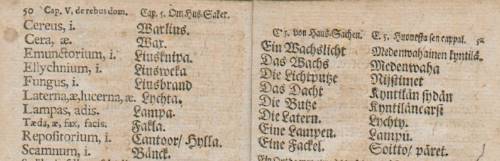 50 Cap. V. de rebus dom. Cap. 5. Om Hus-Saker.
Cereus, i. Waxlius.
Cera, æ. Wax.
Emunctorium, i. Liusknipa.
Ellychnium, i. Liuswecka
Fungus, i. Liusbrand
Laterna,æ,lucerna,æ. Lychta.
Lampas, adis. Lampa.
Tæda, æ, fax, facis. Fakla.
Repositorium, i. Cantoor/ Hylla.
Scamnum, i. Bänck.
C. 5. von Haus-Sachen. E. 5. Huonesta sen cappal.
Ein Wachslicht Medenwahainen kyntilä.
Das Wachs Medenwaha
Die Lichtputze Nijstimet
Das Dacht Kyntilän sydän
Die Butze Kyntiläncarsi
Die Latern. Lychty.
Eine Lampen. Lampu.
Eine Fackel. Soitto/ päret.